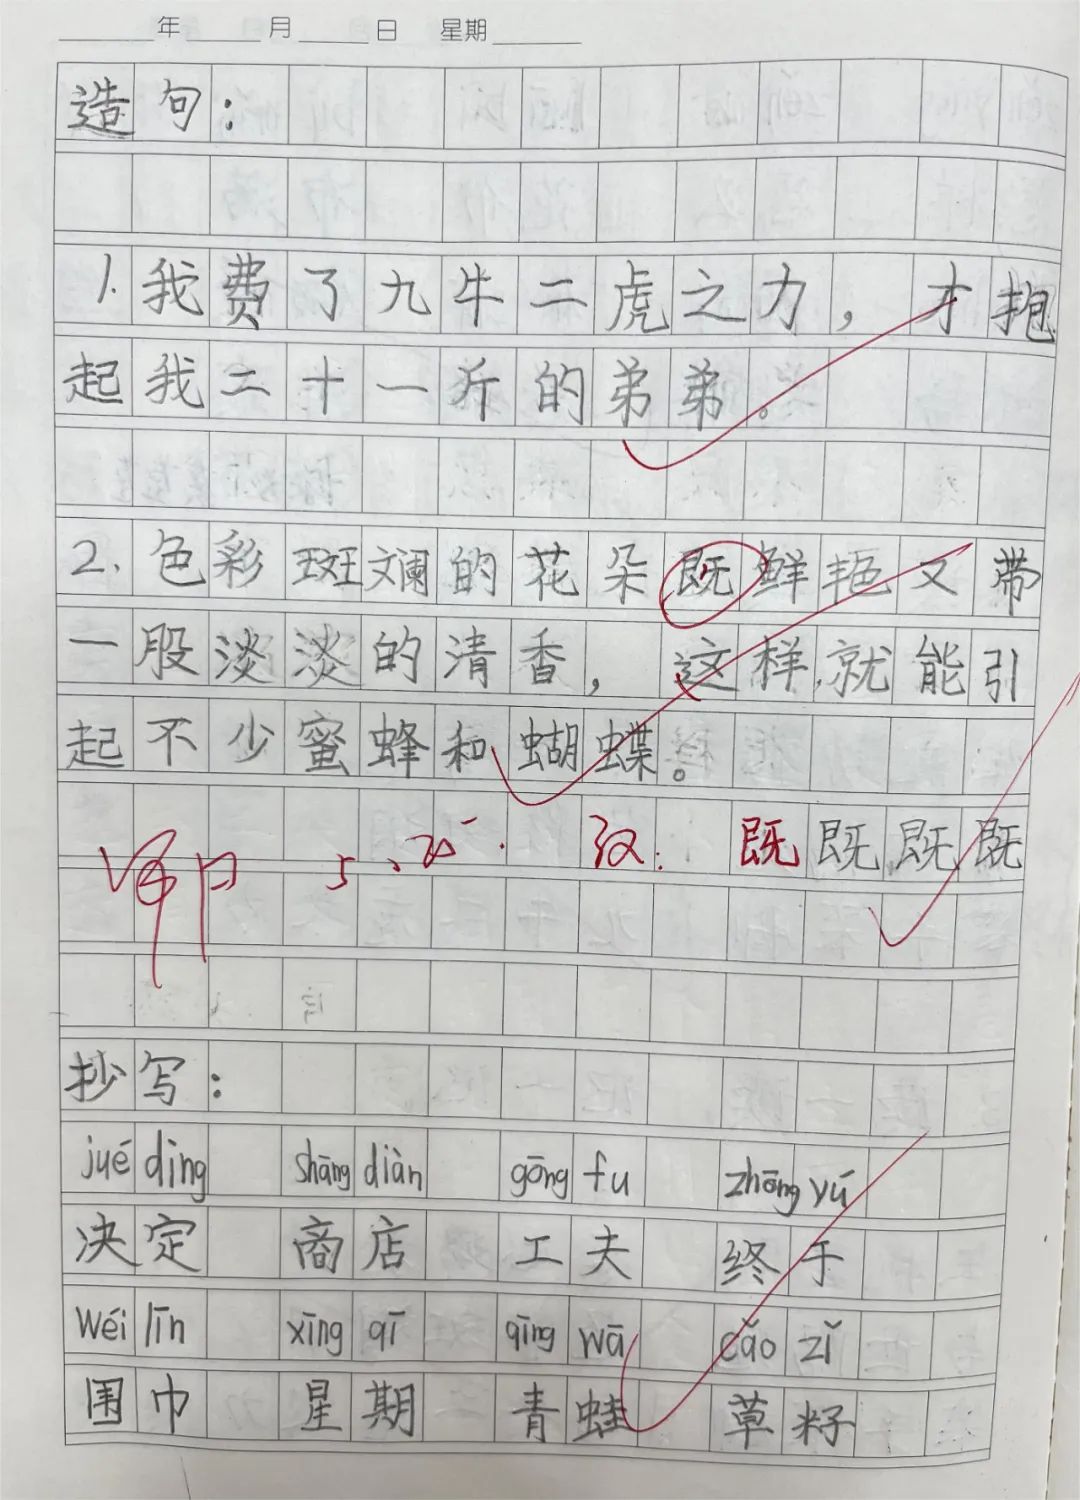 年 月 日 星期
造句：
1. 我费了九牛二虎之力，才抱
起我二十一斤的弟弟。
2. 色彩斑斓的花朵既鲜艳又带
一股淡淡的清香，这样，就能引
起不少蜜蜂和蝴蝶。
5.25. 汉. 既既既既
抄写：
jué dìng shāng diàn gōng fu zhōng yú
决定 商店 工夫 终于
wéi jīn xīng qī qīng wā cǎo zǐ
围巾 星期 青蛙 草籽